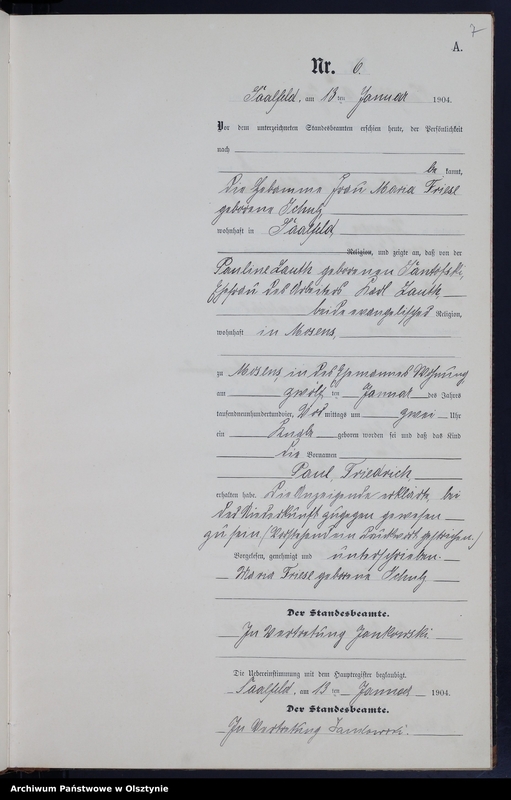 7
A.
Nr. 6.
Saalfeld, am 13ten Januar 1904.
Vor dem unterzeichneten Standesbeamten erschien heute, der Persönlichkeit
nach
be kannt,
die Hebamme Frau Maria Friese
geborene Schulz
wohnhaft in Saalfeld,
Religion, und zeigte an, daß von der
Pauline Lauth geborenen
Ehefrau des Arbeiters Karl Lauth,
beide evangelischer Religion,
wohnhaft in Mosens,
zu Mosens, in des Ehemannes Wohnung
am zwölften Januar des Jahres
tausendneunhundertundvier, Vormittags um zwei Uhr
ein Knabe geboren worden sei und daß das Kind
die Vornamen
Paul, Friedrich,
erhalten habe. Die Anzeigende erklärte, bei
der Niederkunft zugegen gewesen
zu sein. (Vorstehend ein Druckwort gestrichen.)
Vorgelesen, genehmigt und unterschrieben.
Maria Friese geborene Schulz
Der Standesbeamte.
In Vertretung Jankowski
Die Uebereinstimmung mit dem Hauptregister beglaubigt.
Saalfeld, am 13ten Januar 1904.
Der Standesbeamte.
In Vertretung Jankowski.
Archiwum Państwowe w Olsztynie